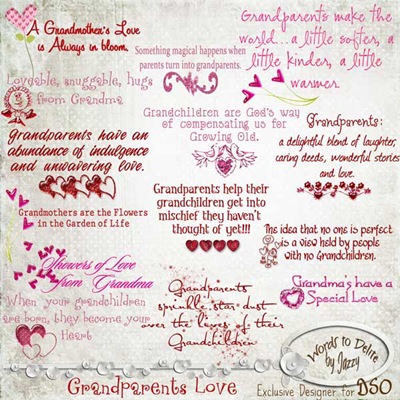 A Grandmother's Love
is Always in bloom.
Something magical happens when
parents turn into grandparents.
Grandparents make the
world...a little softer, a
little kinder, a little
warmer
Loveable, snuggable, hugs
from Grandma
Grandchildren are God's way
of compensating us for
Growing Old.
Grandparents have an
abundance of indulgence
and unwavering love.
Grandparents:
a delightful blend of laughter,
caring deeds, wonderful stories
and love.
Grandparents help their
grandchildren get into
mischief they haven't
thought of yet!!!
Grandmothers are the Flowers
in the Garden of Life
The idea that no one is perfect
is a view held by people
with no Grandchildren.
Showers of Love
from Grandma
Grandparents
sprinkle star dust
over the lives of their
Grandchildren
Grandma's have a
Special Love
When your grandchildren
are born, they become your
Heart
Words to Delite
by Jazzy
Grandparents Love
Exclusive Designer for DSO